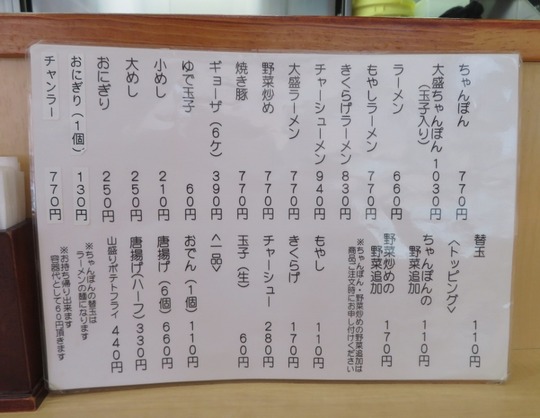 ちゃんぽん 770円
大盛ちゃんぽん 1030円
（玉子入り）
ラーメン 660円
もやしラーメン 770円
きくらげラーメン 830円
チャーシューメン 940円
大盛ラーメン 770円
野菜炒め 770円
焼き豚 770円
ギョーザ（6ケ） 390円
ゆで玉子 60円
小めし 210円
大めし 250円
おにぎり 250円
おにぎり（1個） 130円
チャンラー 770円
替玉 110円
<トッピング>
ちゃんぽんの
野菜追加 110円
野菜炒めの
野菜追加 170円
※ちゃんぽん・野菜炒めの野菜追加は
商品ご注文時にお申し付けください
もやし 110円
きくらげ 170円
チャーシュー 280円
玉子（生） 60円
<一品>
おでん（1個） 110円
唐揚げ（6個） 660円
唐揚げ（ハーフ） 330円
山盛りポテトフライ 440円
※ちゃんぽんの替玉は
ラーメンの麺になります
※お持ち帰り出来ます
容器代として60円頂きます